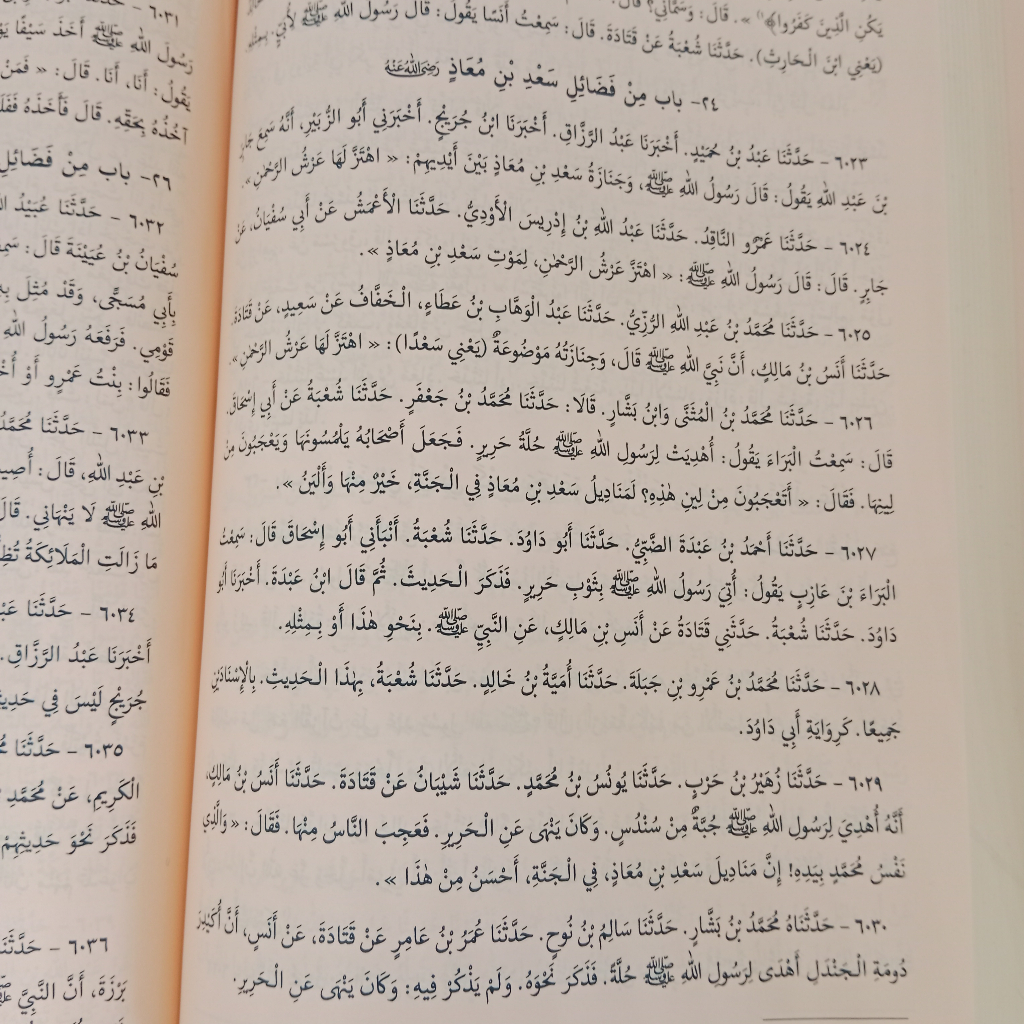 يَكُنِ الَّذِينَ كَفَرُوا﴾ ». قَالَ: وَسَمَّانِي؟ قَالَ:
(يَعْنِي ابْنَ الْحَارِثِ). حَدَّثَنَا شُعْبَةُ عَنْ قَتَادَةَ. قَالَ: سَمِعْتُ أَنَسًا يَقُولُ: قَالَ رَسُولُ اللهِ ﷺ لِأُبَيٍّ.
٢٤- باب مِنْ فَضَائِلِ سَعْدِ بْنِ مُعَاذٍ رَضِيَ اللهُ عَنْهُ
٦٠٢٣ - حَدَّثَنَا عَبْدُ بْنُ حُمَيْدٍ. أَخْبَرَنَا عَبْدُ الرَّزَّاقِ. أَخْبَرَنَا ابْنُ جُرَيْجٍ. أَخْبَرَنِي أَبُو الزُّبَيْرِ، أَنَّهُ سَمِعَ جَابِرَ
بْنَ عَبْدِ اللهِ يَقُولُ: قَالَ رَسُولُ اللهِ ﷺ، وَجَنَازَةُ سَعْدِ بْنِ مُعَاذٍ بَيْنَ أَيْدِيهِمْ: « اهْتَزَّ لَهَا عَرْشُ الرَّحْمٰنِ ».
٦٠٢٤ - حَدَّثَنَا عَمْرٌو النَّاقِدُ. حَدَّثَنَا عَبْدُ اللهِ بْنُ إِدْرِيسَ الْأَوْدِيُّ. حَدَّثَنَا الْأَعْمَشُ عَنْ أَبِي سُفْيَانَ، عَنْ
جَابِرٍ. قَالَ: قَالَ رَسُولُ اللهِ ﷺ: « اهْتَزَّ عَرْشُ الرَّحْمٰنِ، لِمَوْتِ سَعْدِ بْنِ مُعَاذٍ ».
٦٠٢٥ - حَدَّثَنَا مُحَمَّدُ بْنُ عَبْدِ اللهِ الرُّزِّيُّ. حَدَّثَنَا عَبْدُ الْوَهَّابِ بْنُ عَطَاءٍ، الْخَفَّافُ عَنْ سَعِيدٍ، عَنْ قَتَادَةَ.
حَدَّثَنَا أَنَسُ بْنُ مَالِكٍ، أَنَّ نَبِيَّ اللهِ ﷺ قَالَ، وَجِنَازَتُهُ مَوْضُوعَةٌ (يَعْنِي سَعْدًا): « اهْتَزَّ لَهَا عَرْشُ الرَّحْمٰنِ ».
٦٠٢٦ - حَدَّثَنَا مُحَمَّدُ بْنُ الْمُثَنَّى وَابْنُ بَشَّارٍ. قَالَا: حَدَّثَنَا مُحَمَّدُ بْنُ جَعْفَرٍ. حَدَّثَنَا شُعْبَةُ عَنْ أَبِي إِسْحَاقَ.
قَالَ: سَمِعْتُ الْبَرَاءَ يَقُولُ: أُهْدِيَتْ لِرَسُولِ اللهِ ﷺ حُلَّةُ حَرِيرٍ. فَجَعَلَ أَصْحَابُهُ يَلْمُسُونَهَا وَيَعْجَبُونَ مِنْ
لِينِهَا. فَقَالَ: « أَتَعْجَبُونَ مِنْ لِينِ هٰذِهِ؟ لَمَنَادِيلُ سَعْدِ بْنِ مُعَاذٍ فِي الْجَنَّةِ، خَيْرٌ مِنْهَا وَأَلْيَنُ ».
٦٠٢٧ - حَدَّثَنَا أَحْمَدُ بْنُ عَبْدَةَ الضَّبِّيُّ. حَدَّثَنَا أَبُو دَاوُدَ. حَدَّثَنَا شُعْبَةُ. أَنْبَأَنِي أَبُو إِسْحَاقَ قَالَ: سَمِعْتُ
الْبَرَاءَ بْنَ عَازِبٍ يَقُولُ: أُتِيَ رَسُولُ اللهِ ﷺ بِثَوْبِ حَرِيرٍ. فَذَكَرَ الْحَدِيثَ. ثُمَّ قَالَ ابْنُ عَبْدَةَ. أَخْبَرَنَا أَبُو
دَاوُدَ. حَدَّثَنَا شُعْبَةُ. حَدَّثَنِي قَتَادَةُ عَنْ أَنَسِ بْنِ مَالِكٍ، عَنِ النَّبِيِّ ﷺ. بِنَحْوِ هٰذَا أَوْ بِمِثْلِهِ.
٦٠٢٨ - حَدَّثَنَا مُحَمَّدُ بْنُ عَمْرِو بْنِ جَبَلَةَ. حَدَّثَنَا أُمَيَّةُ بْنُ خَالِدٍ. حَدَّثَنَا شُعْبَةُ، بِهٰذَا الْحَدِيثِ. بِالْإِسْنَادَيْنِ
جَمِيعًا. كَرِوَايَةِ أَبِي دَاوُدَ.
٦٠٢٩ - حَدَّثَنَا زُهَيْرُ بْنُ حَرْبٍ. حَدَّثَنَا يُونُسُ بْنُ مُحَمَّدٍ. حَدَّثَنَا شَيْبَانُ عَنْ قَتَادَةَ. حَدَّثَنَا أَنَسُ بْنُ مَالِكٍ،
أَنَّهُ أُهْدِيَ لِرَسُولِ اللهِ ﷺ جُبَّةٌ مِنْ سُنْدُسٍ. وَكَانَ يَنْهَى عَنِ الْحَرِيرِ. فَعَجِبَ النَّاسُ مِنْهَا. فَقَالَ: « وَالَّذِي
نَفْسُ مُحَمَّدٍ بِيَدِهِ! إِنَّ مَنَادِيلَ سَعْدِ بْنِ مُعَاذٍ، فِي الْجَنَّةِ، أَحْسَنُ مِنْ هٰذَا ».
٦٠٣٠ - حَدَّثَنَاهُ مُحَمَّدُ بْنُ بَشَّارٍ. حَدَّثَنَا سَالِمُ بْنُ نُوحٍ. حَدَّثَنَا عُمَرُ بْنُ عَامِرٍ عَنْ قَتَادَةَ، عَنْ أَنَسٍ، أَنَّ أُكَيْدِرَ
دُومَةِ الْجَنْدَلِ أَهْدَى لِرَسُولِ اللهِ ﷺ حُلَّةً. فَذَكَرَ نَحْوَهُ. وَلَمْ يَذْكُرْ فِيهِ: وَكَانَ يَنْهَى عَنِ الْحَرِيرِ.
٦٠٣١ - حَدَّثَنَا
رَسُولَ اللهِ ﷺ أَخَذَ سَيْفًا
يَقُولُ: أَنَا، أَنَا. قَالَ: « فَمَنْ
آخُذُهُ بِحَقِّهِ. قَالَ فَأَخَذَهُ
٢٦- باب مِنْ فَضَائِلِ
٦٠٣٢ - حَدَّثَنَا عُبَيْدُ
سُفْيَانُ بْنُ عُيَيْنَةَ قَالَ:
بِأَبِي مُسَجًّى، وَقَدْ مُثِلَ
قَوْمِي. فَرَفَعَهُ رَسُولُ اللهِ
فَقَالُوا: بِنْتُ عَمْرٍو أَوْ
٦٠٣٣ - حَدَّثَنَا
بْنِ عَبْدِ اللهِ، قَالَ:
اللهِ ﷺ لَا يَنْهَانِي.
مَا زَالَتِ الْمَلَائِكَةُ
٦٠٣٤ - حَدَّثَنَا
أَخْبَرَنَا عَبْدُ الرَّزَّاقِ.
جُرَيْجٍ لَيْسَ فِي
٦٠٣٥ - حَدَّثَنَا
الْكَرِيمِ، عَنْ مُحَمَّدِ
فَذَكَرَ نَحْوَ حَدِيثِهِمْ
٦٠٣٦ -
بَرْزَةَ، أَنَّ النَّبِيَّ